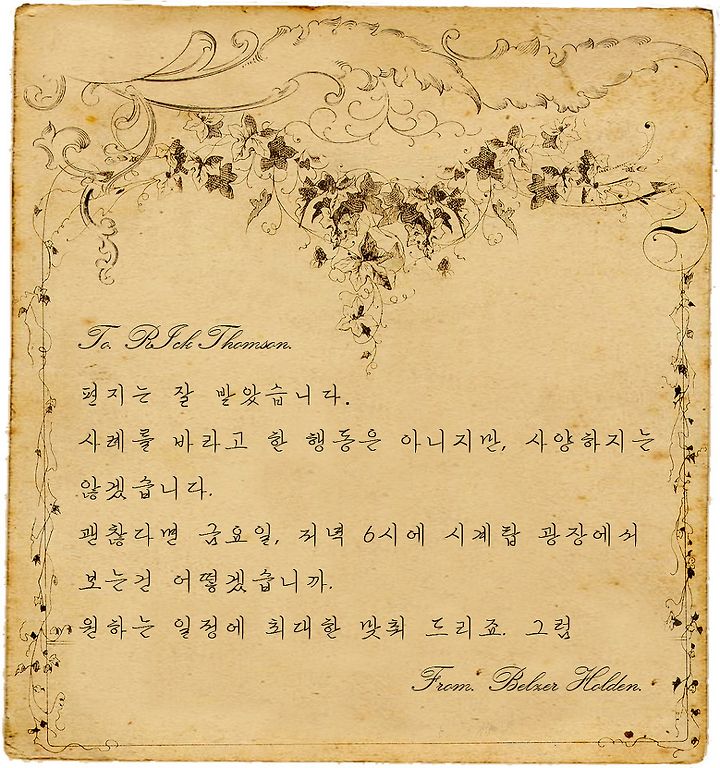 To. RIck Thomson.
편지는 잘 받았습니다.
사례를 바라고 한 행동은 아니지만, 사양하지는
않겠습니다.
괜찮다면 금요일, 저녁 6시에 시계탑 광장에서
보는건 어떻겠습니까.
원하는 일정에 최대한 맞춰 드리죠. 그럼
From. Belzer Holden.